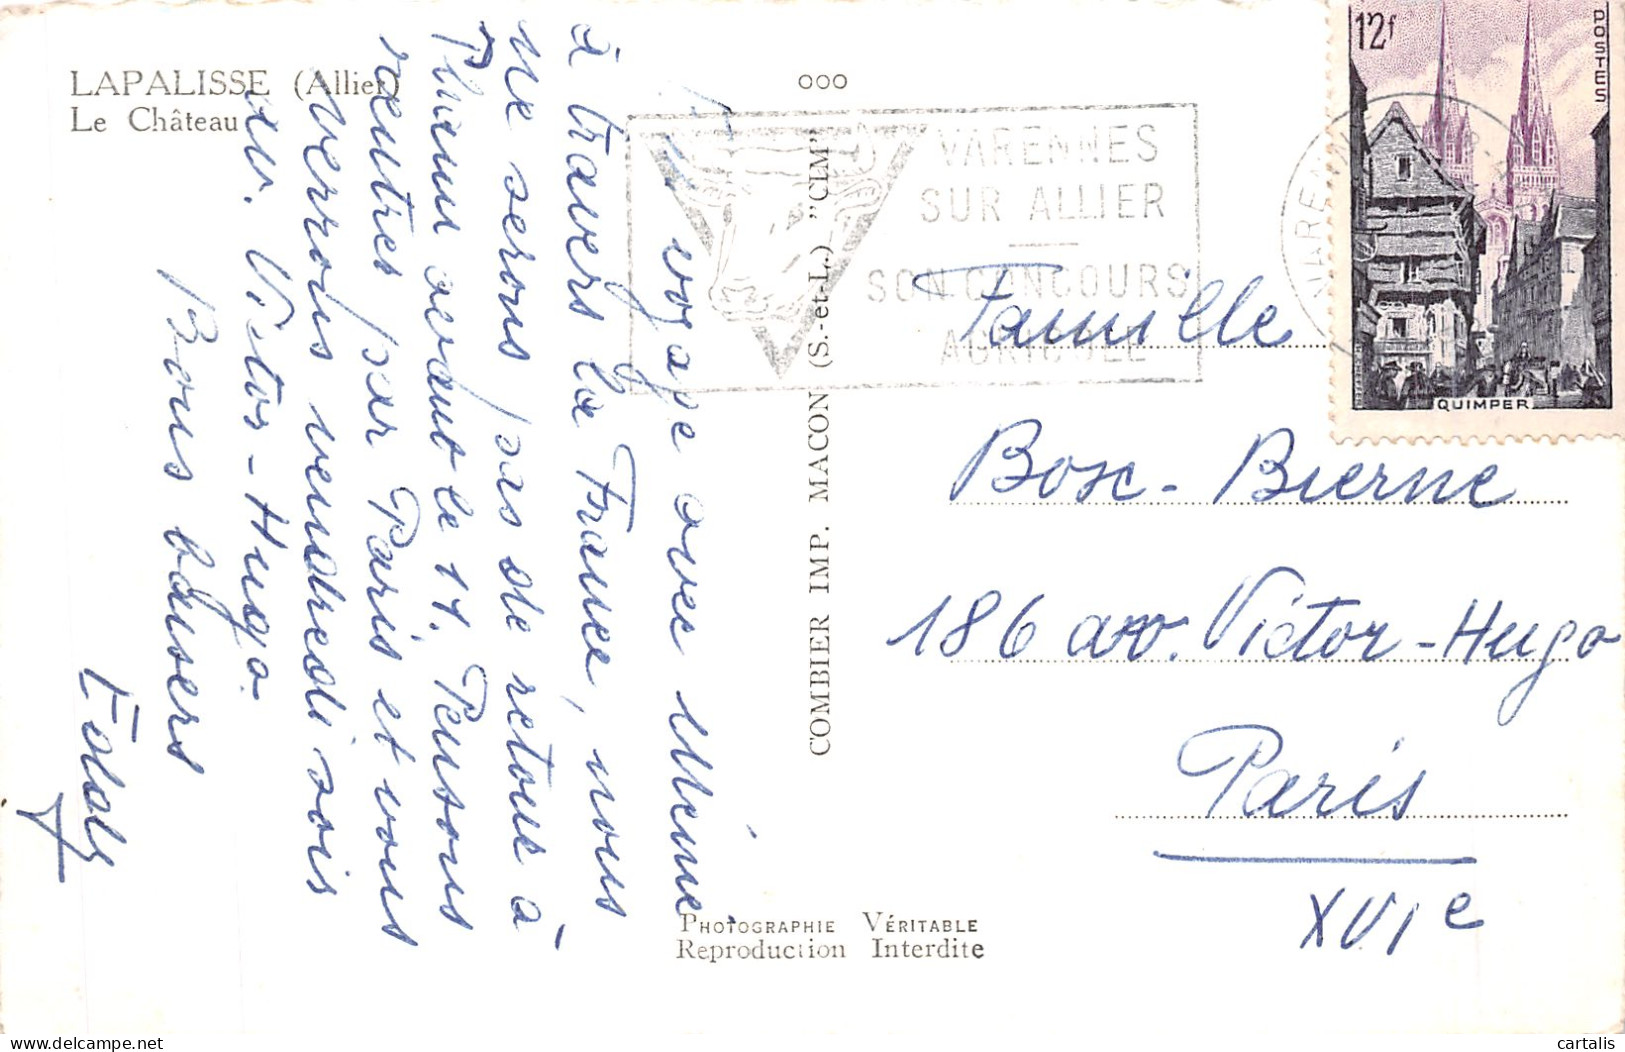 LAPALISSE (Allier)
Le Château
000
VARENNES
SUR ALLIER
SON CONCOURS
AGRICOLE
VARENN
12f
POSTES
QUIMPER
COMBIER IMP. MACON (S.-et-L.) "CIM"
voyage avec
à travers la France, nous
ne serons pas de retour à
avant le 11. Pensons
rentrer par Paris et vous
verrons vendredi soir
av. Victor-Hugo.
Bons baisers
Famille
Bosc-Bierne
186 av. Victor-Hugo
Paris
XVIe
PHOTOGRAPHIE VÉRITABLE
Reproduction Interdite
cartalis